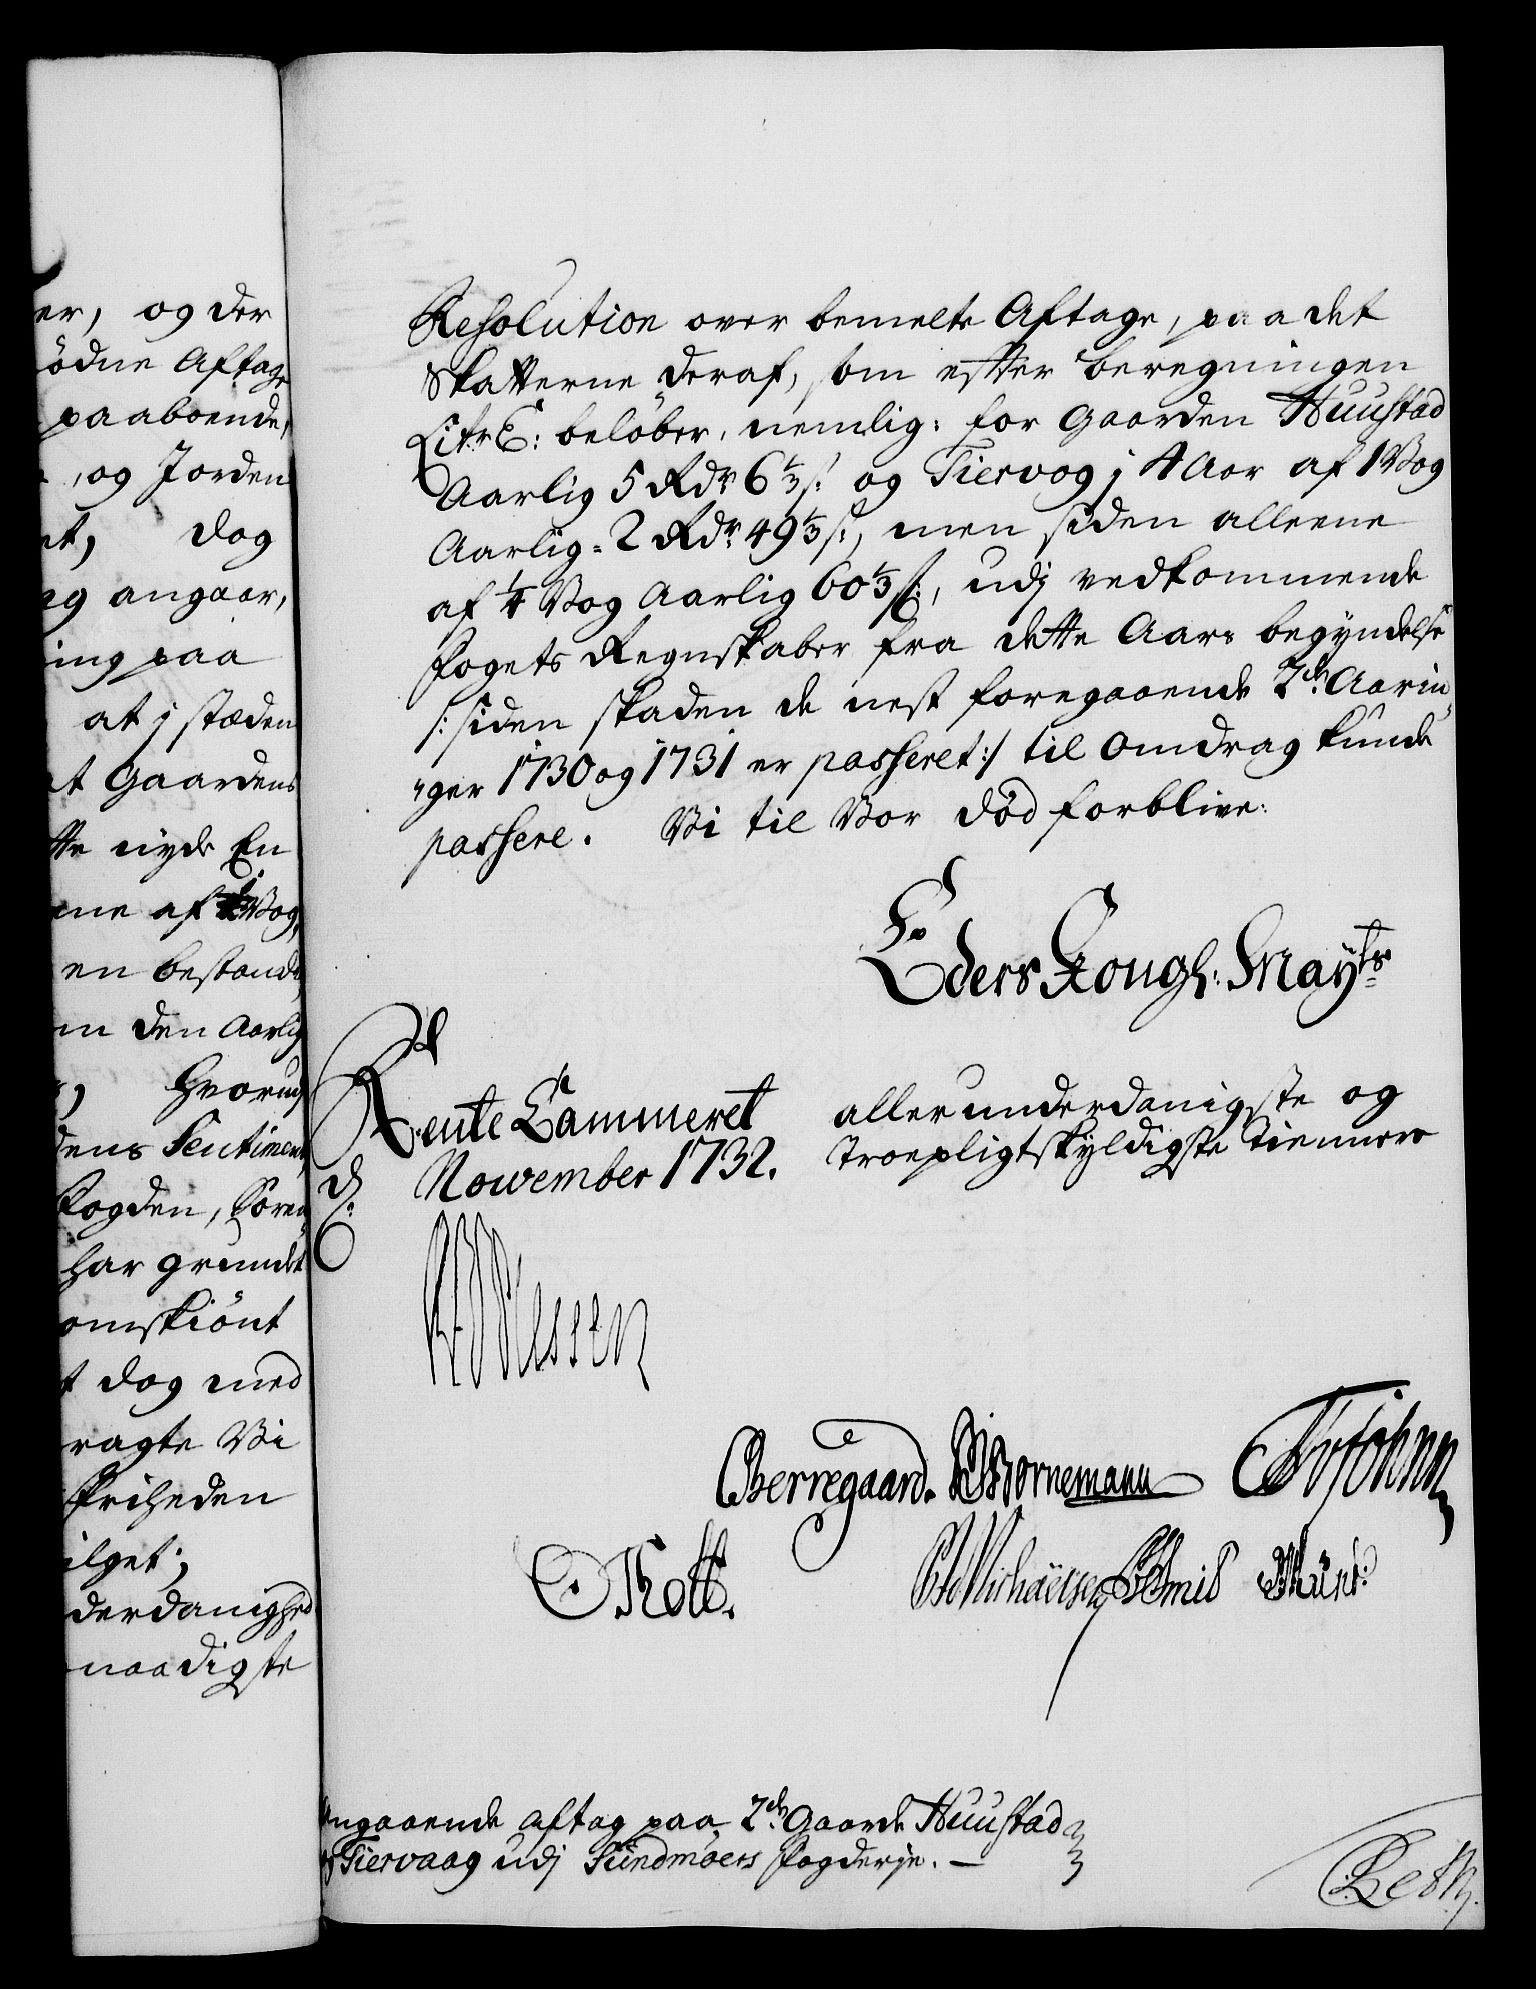 er, og der
ödne Aftage
paaboende,
, og Jorden
et, dog
ng angaar,
ing paa
at j stæden
t Gaardens
tte nyde En
ne af 1 Vog,
en bestandi
m den Aarlig
, hvorudj
dens Sentiment
Fogden, Sören
har grundet
omskiönt
t dog med
ragte Vi
Friheden
ilget;
derdanighed
naadigste
Resolution over bemelte Aftage, paa det
Skatterne deraf, som efter beregningen
Litr E: belöber, nemlig: for Gaarden Huustad
Aarlig 5 Rdr 6 1/3 s: og Tiervog j 4 Aar af 1 Vog
Aarlig = 2 Rdr 49 1/3 s:, men siden alleene
af 1/4 Vog Aarlig 60 1/3 s:, udj vedkommende
Fogets Regnskaber fra dette Aars begyndelse
/: siden skaden de nest foregaaende 2de Aarin„
„ger 1730 og 1731 er passeret :/ til omdrag kunde
passere. Vi til Vor död forblive:
Eders Kongl: Mayts
Rente Cammeret
d:
November 1732.
allerunderdanigste og
Troepligtskyldigste Tiennere
Plessen
Berregaard. Bornemann
Trott.
Michaelsen
Angaaende Aftag paa 2de Gaarde Huustad
og Tiervaag udj Sundmöers Fogderje. —